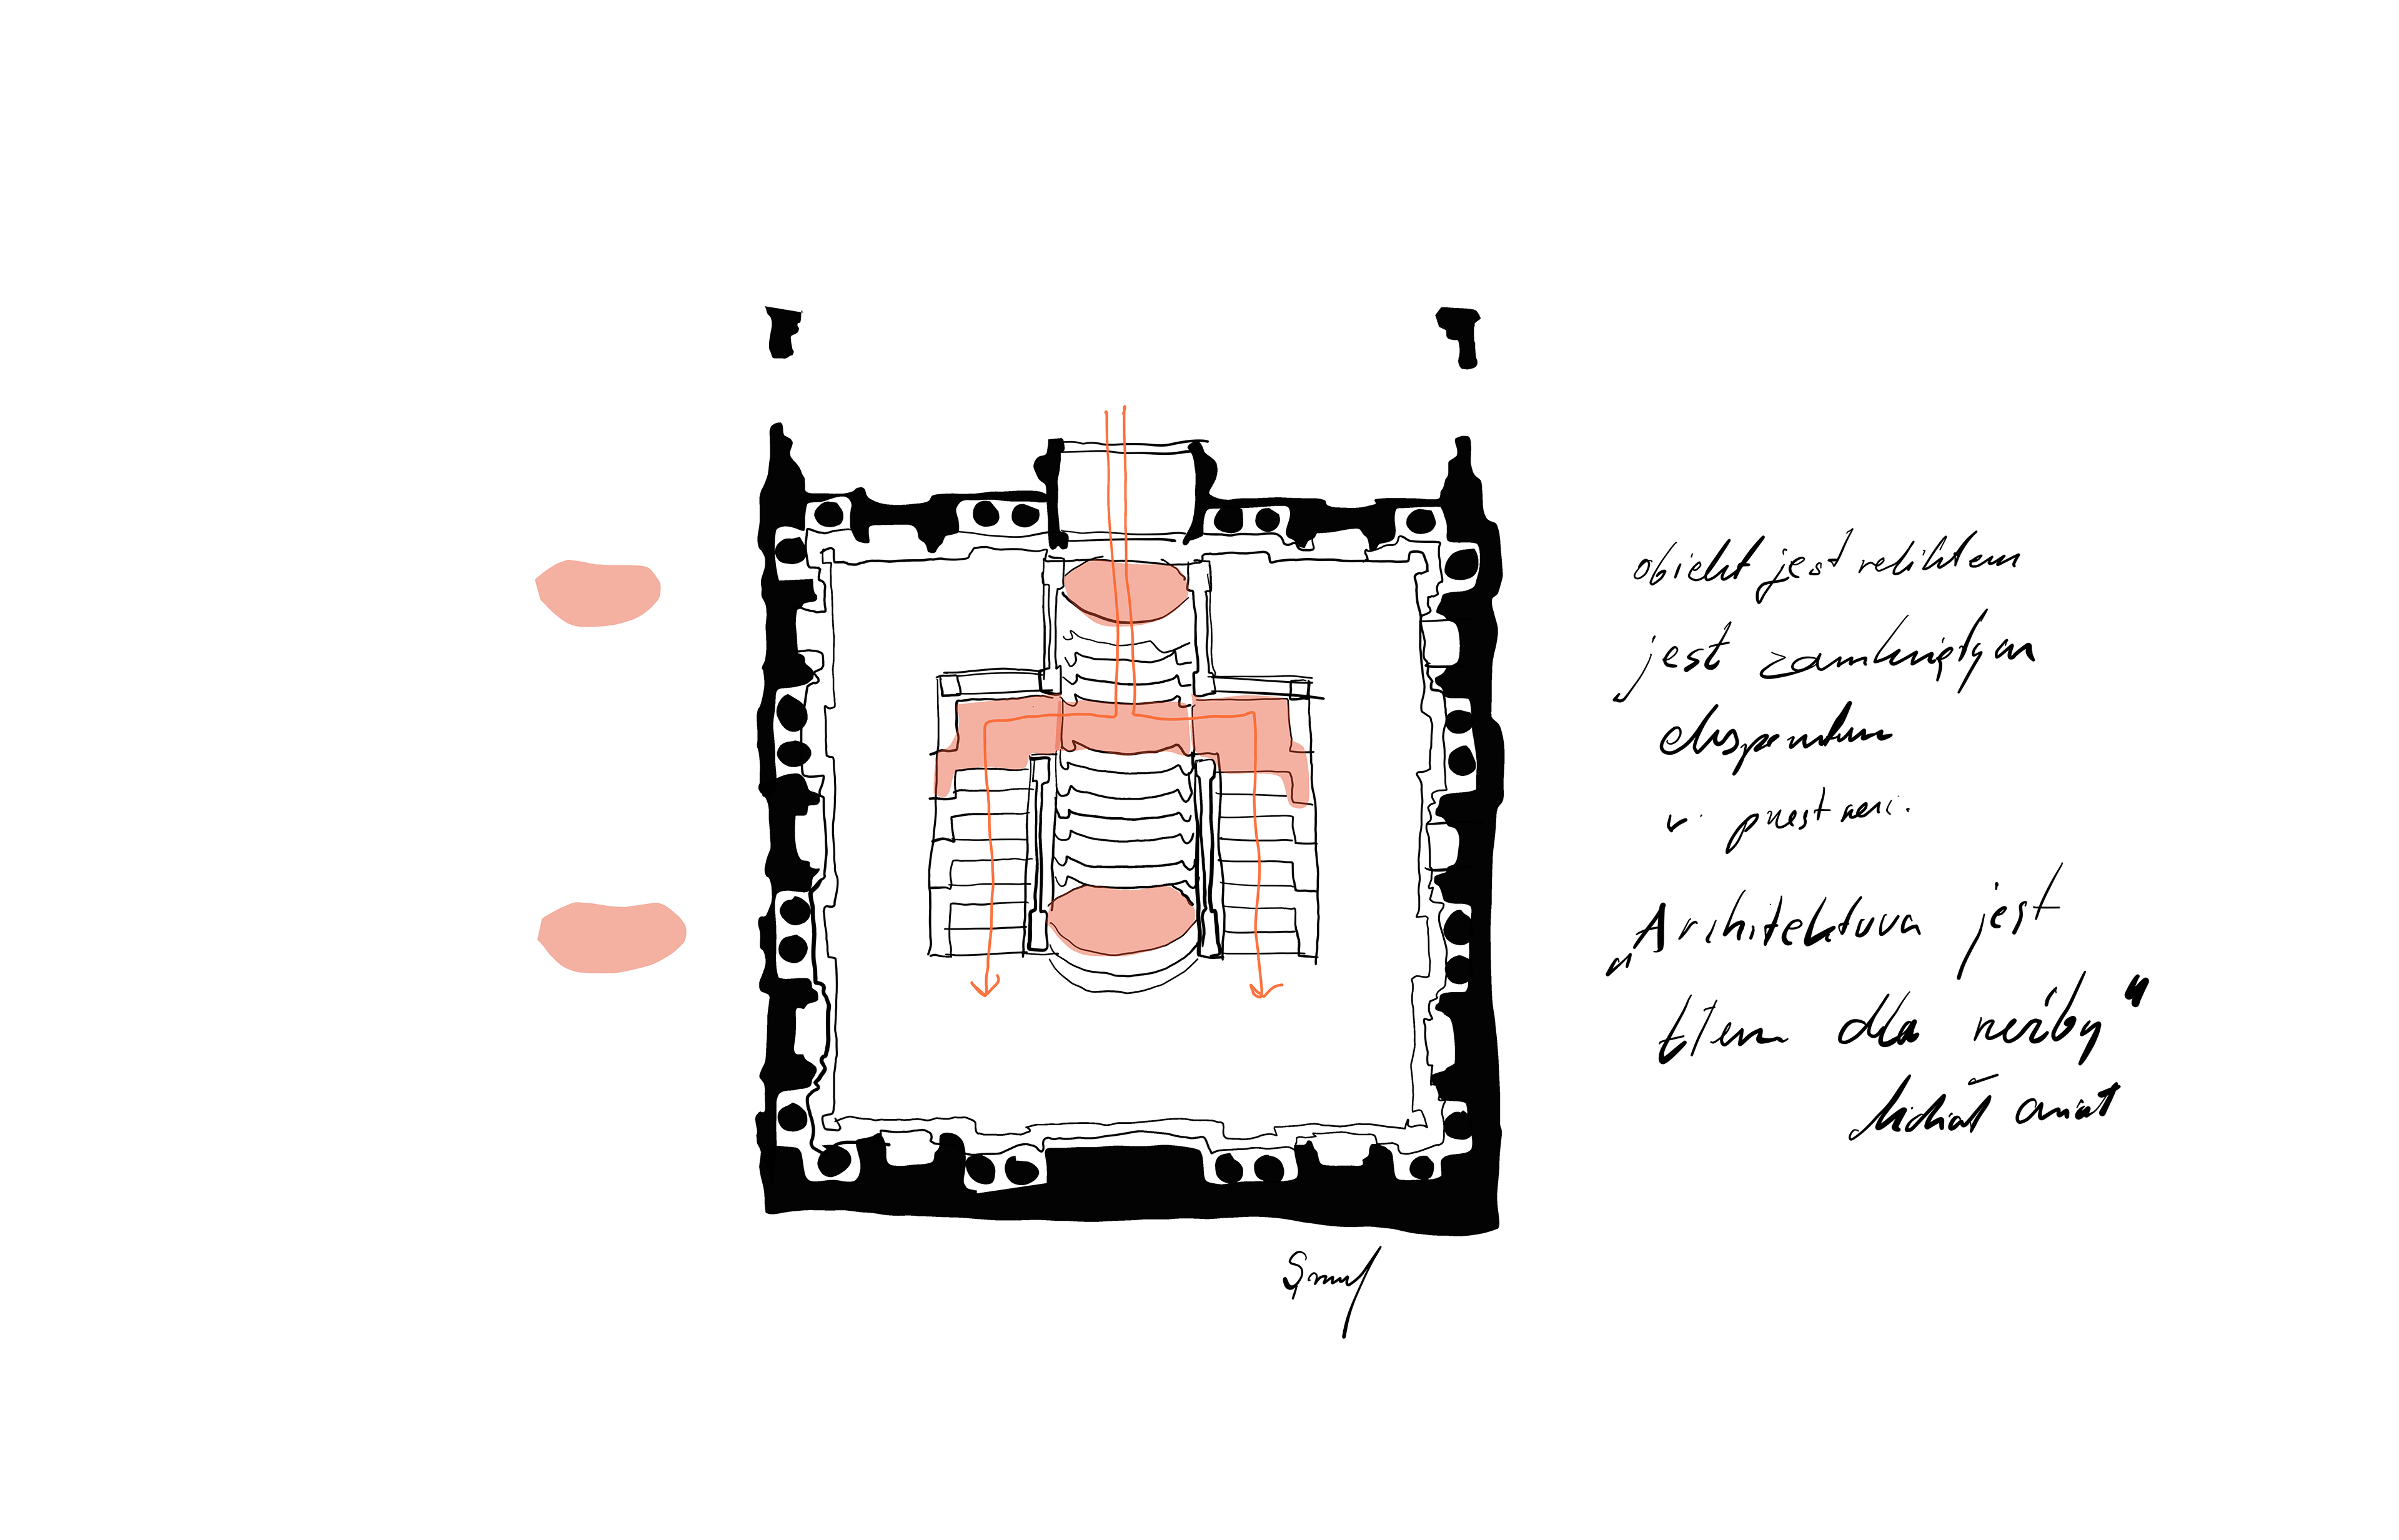 obiekt jest reliktem
jest zamkniętym
eksponatem
w przestrzeni.
„Architektura jest
tłem dla rzeźby"
Michał Anioł